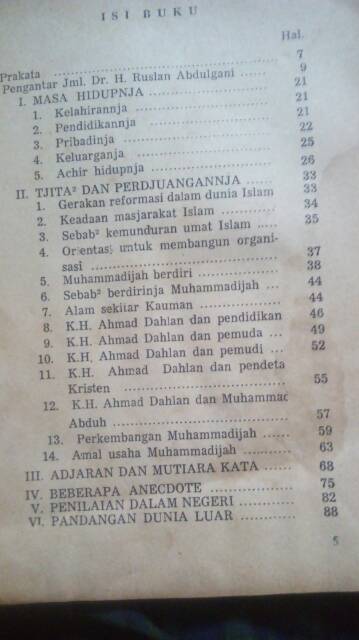 ISI BUKU
Hal.
Prakata ........ 7
Pengantar Jml. Dr. H. Ruslan Abdulgani ..... 9
I. MASA HIDUPNJA ........ 21
1. Kelahirannja ........ 21
2. Pendidikannja ........ 21
3. Pribadinja ........ 22
4. Keluarganja ........ 25
5. Achir hidupnja ........ 26
II. TJITA² DAN PERDJUANGANNJA ........ 33
1. Gerakan reformasi dalam dunia Islam 33
2. Keadaan masjarakat Islam ........ 34
3. Sebab² kemunduran umat Islam ..... 35
4. Orientasi untuk membangun organi-
sasi ........ 37
5. Muhammadijah berdiri ........ 38
6. Sebab² berdirinja Muhammadijah ... 44
7. Alam sekitar Kauman ........ 44
8. K.H. Ahmad Dahlan dan pendidikan 46
9. K.H. Ahmad Dahlan dan pemuda ... 49
10. K.H. Ahmad Dahlan dan pemudi ... 52
11. K.H. Ahmad Dahlan dan pendeta
Kristen ........ 55
12. K.H. Ahmad Dahlan dan Muhammad
Abduh ........ 57
13. Perkembangan Muhammadijah ...... 59
14. Amal usaha Muhammadijah ........ 63
III. ADJARAN DAN MUTIARA KATA ........ 68
IV. BEBERAPA ANECDOTE ........ 75
V. PENILAIAN DALAM NEGERI ........ 82
VI. PANDANGAN DUNIA LUAR ........ 88
5